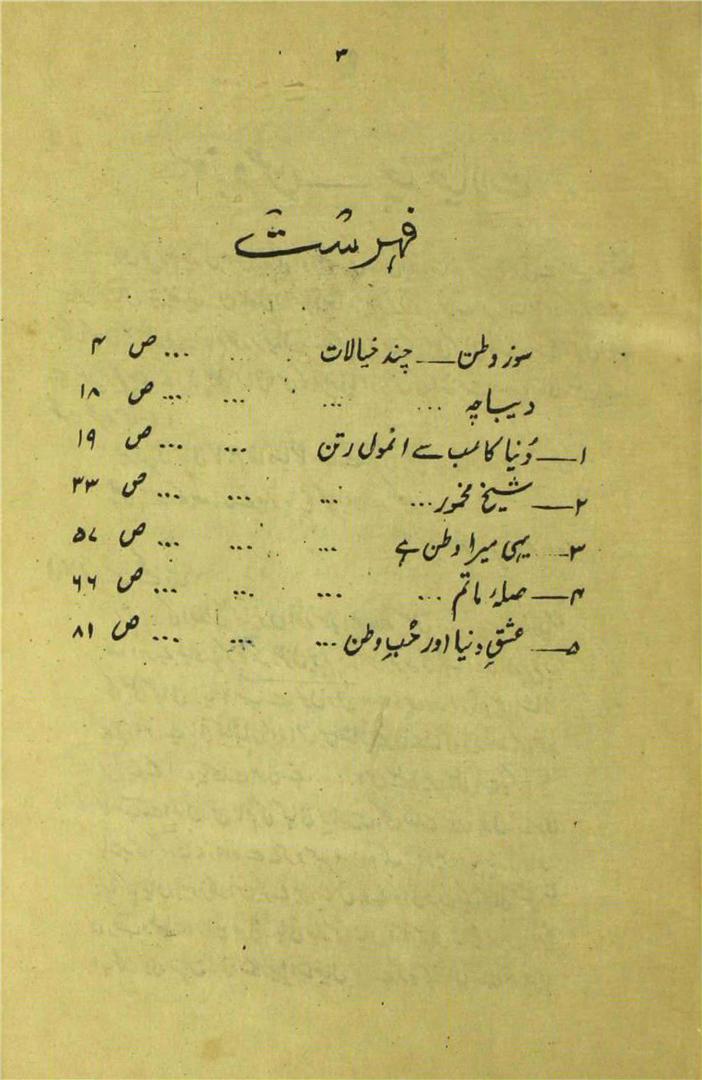 ۳
فہرست
سوز وطن — چند خیالات ... ... ص ۴
دیباچہ ... ... ... ... ص ۱۸
۱ — دُنیا کا سب سے انمول رتن ... ... ص ۱۹
۲ — شیخ مخمور ... ... ... ... ص ۳۳
۳ — یہی میرا وطن ہے ... ... ... ص ۵۷
۴ — صلۂ ماتم ... ... ... ... ص ۶۶
۵ — عشقِ دنیا اور حُبِ وطن ... ... ... ص ۸۱